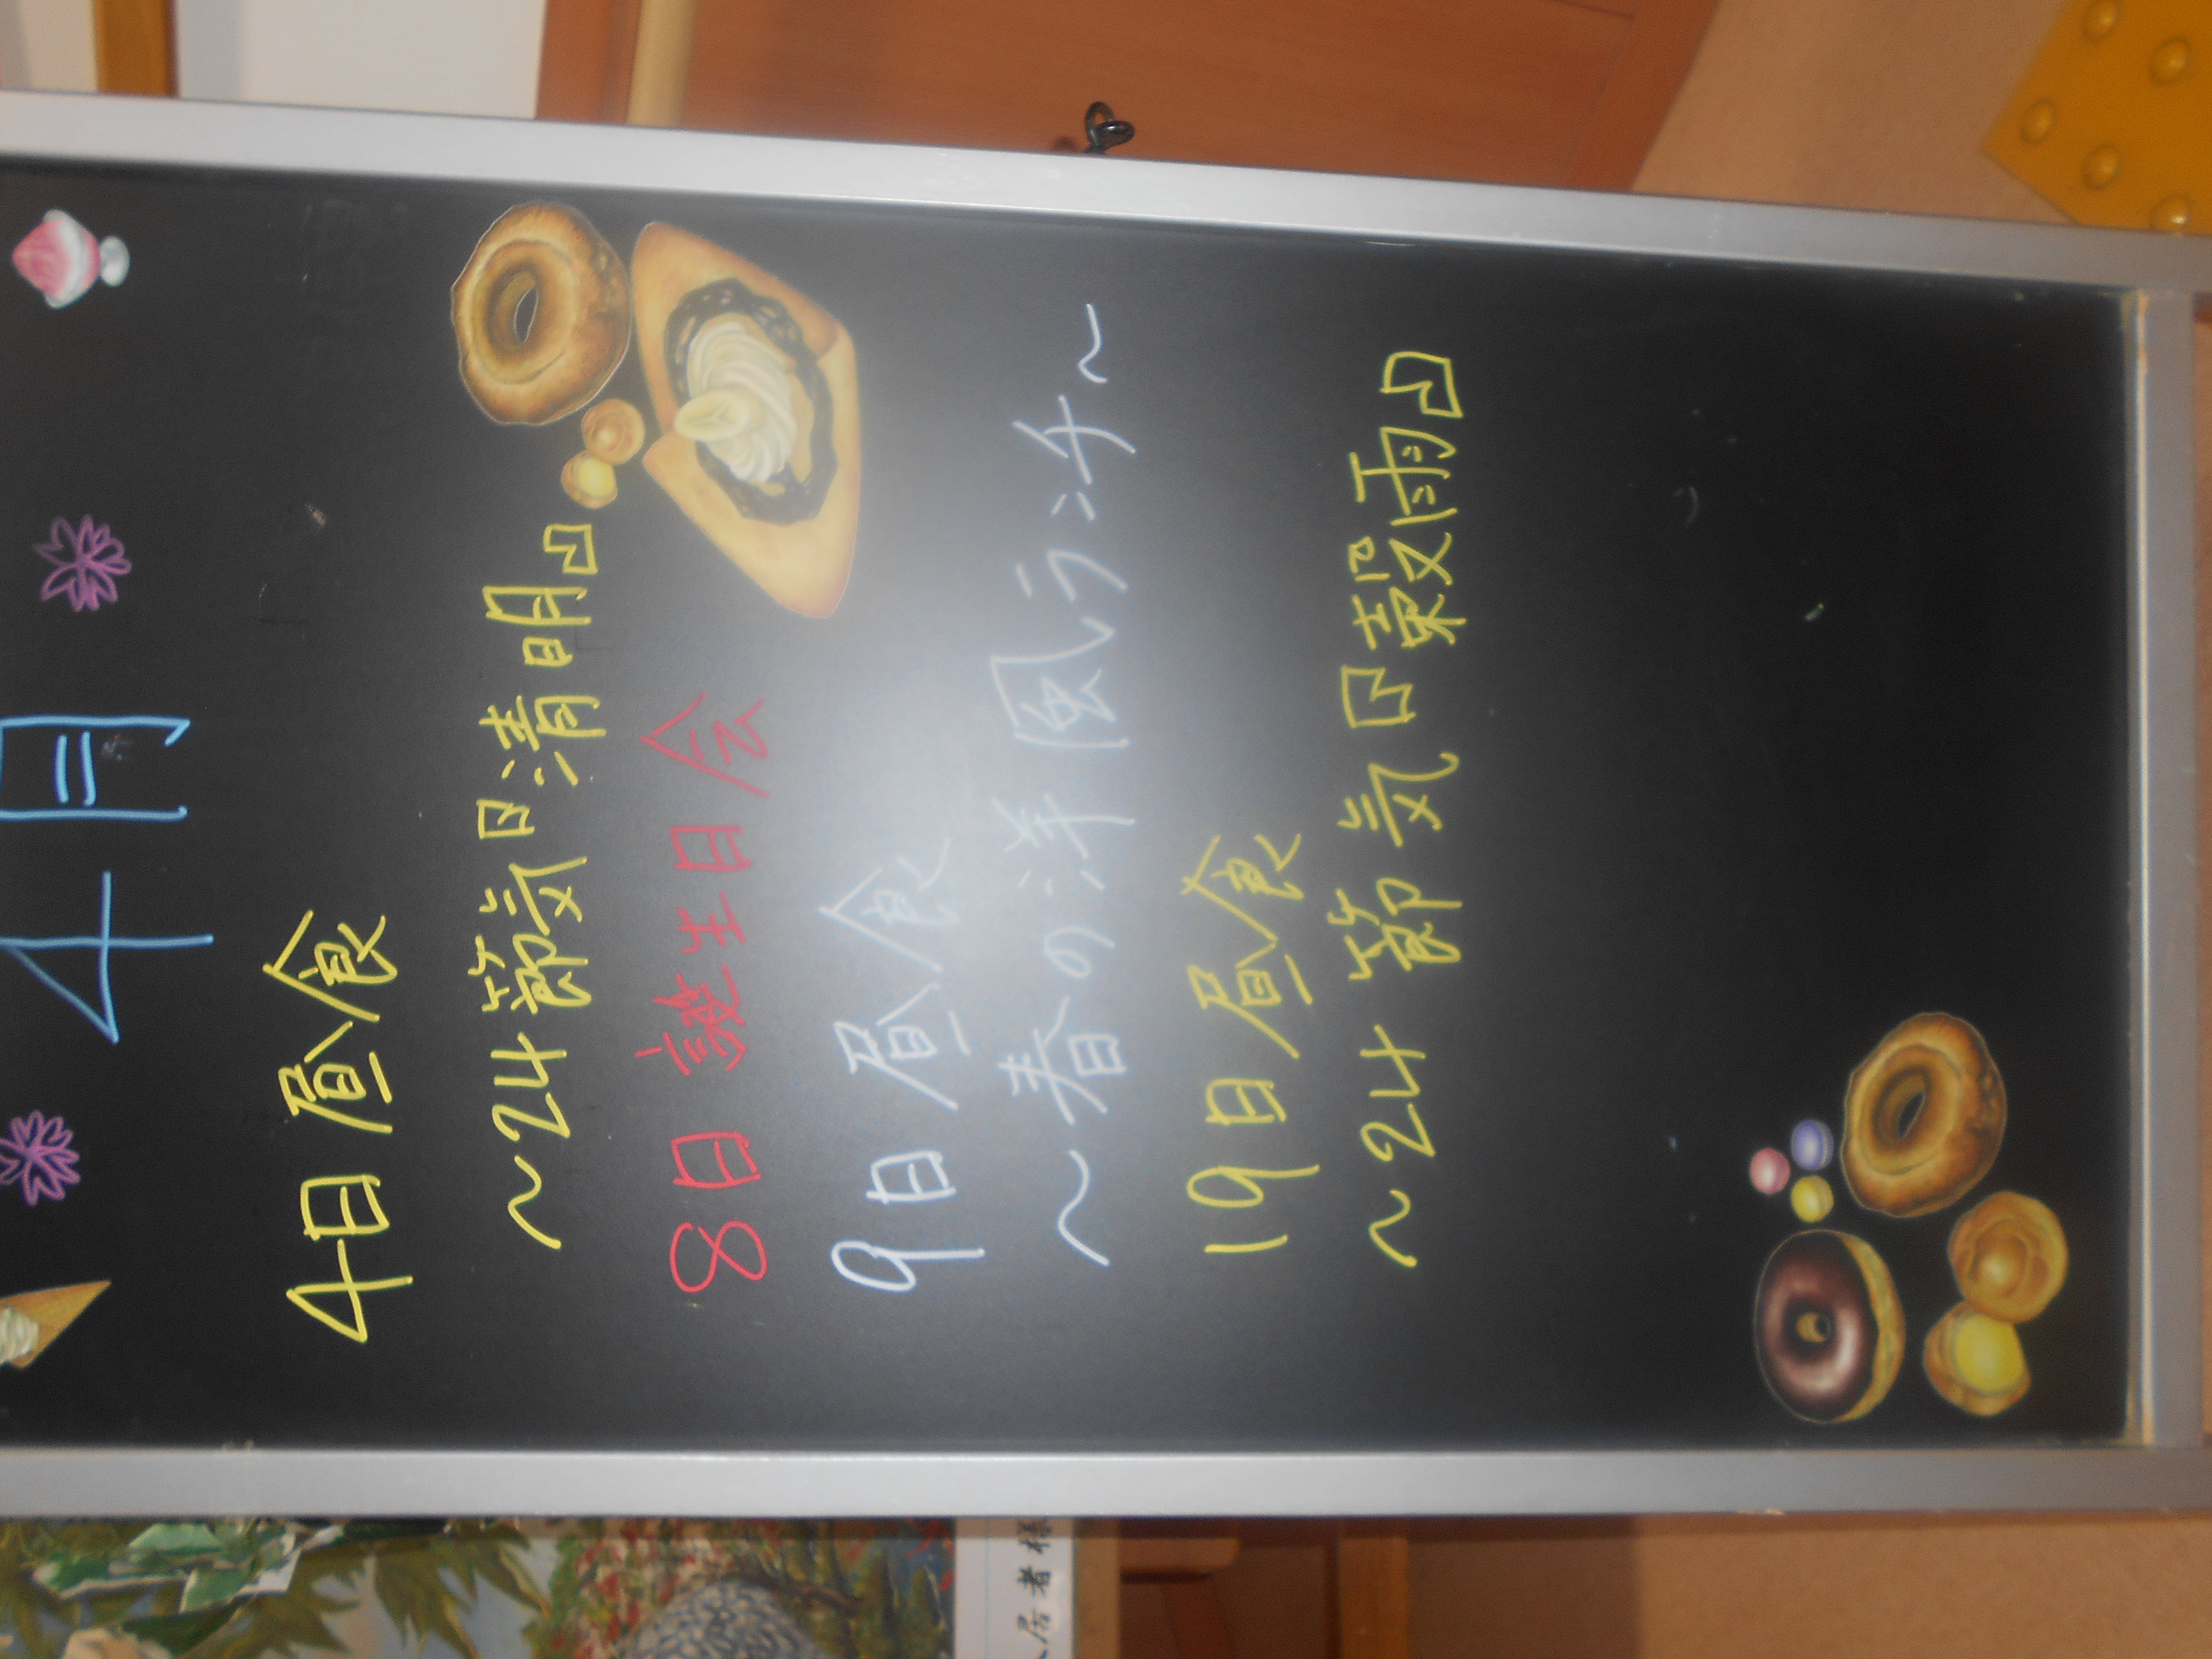 4月
4日 昼食
～24節気『清明』
8日 誕生日会
9日 昼食
～春の洋風ランチ～
19日昼食
～24節気『穀雨』
入居者様